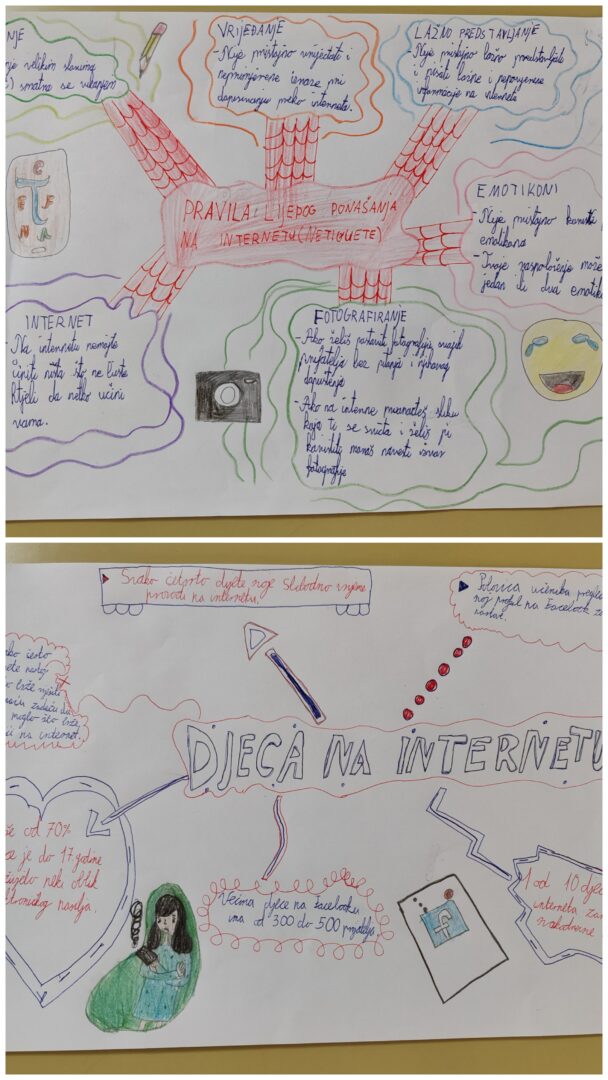 NJE
nje velikim slovima
smatra se vikanjem
VRIJEĐANJE
- Nije pristojno vrijeđati i
neprimjerene izraze pri
dopisivanju preko interneta.
LAŽNO PREDSTAVLJANJE
- Nije pristojno lažno predstavljati
i pisati lažne i neprovjerene
informacije na internetu
PRAVILA LIJEPOG PONAŠANJA
NA INTERNETU (NETIQUETE)
EMOTIKONI
- Nije pristojno koristi
emotikona
- Tvoje raspoloženje može
jedan ili dva emotik
INTERNET
- Na internetu nemojte
činiti ništa što ne biste
htjeli da netko učini
vama.
FOTOGRAFIRANJE
- Ako želiš postaviti fotografiju svojih
prijatelja bez pitanja i njihovog
dopuštenja
- Ako na internetu pronađeš sliku
koja ti se sviđa i želiš ju
koristiti moraš navesti izvor
fotografije
Svako četvrto dijete svoje slobodno vrijeme
provodi na internetu.
Polovica učenika
profil na Facebook
nastave.
često
brže
zadaću da
moglo što brže
ići na internet.
DJECA NA INTERNETU
od 70%
je do 17. godine
neki oblik
nasilja.
Većina djece na facebooku
ima od 300 do 500 prijatelja
f
1 od 10 djece
interneta